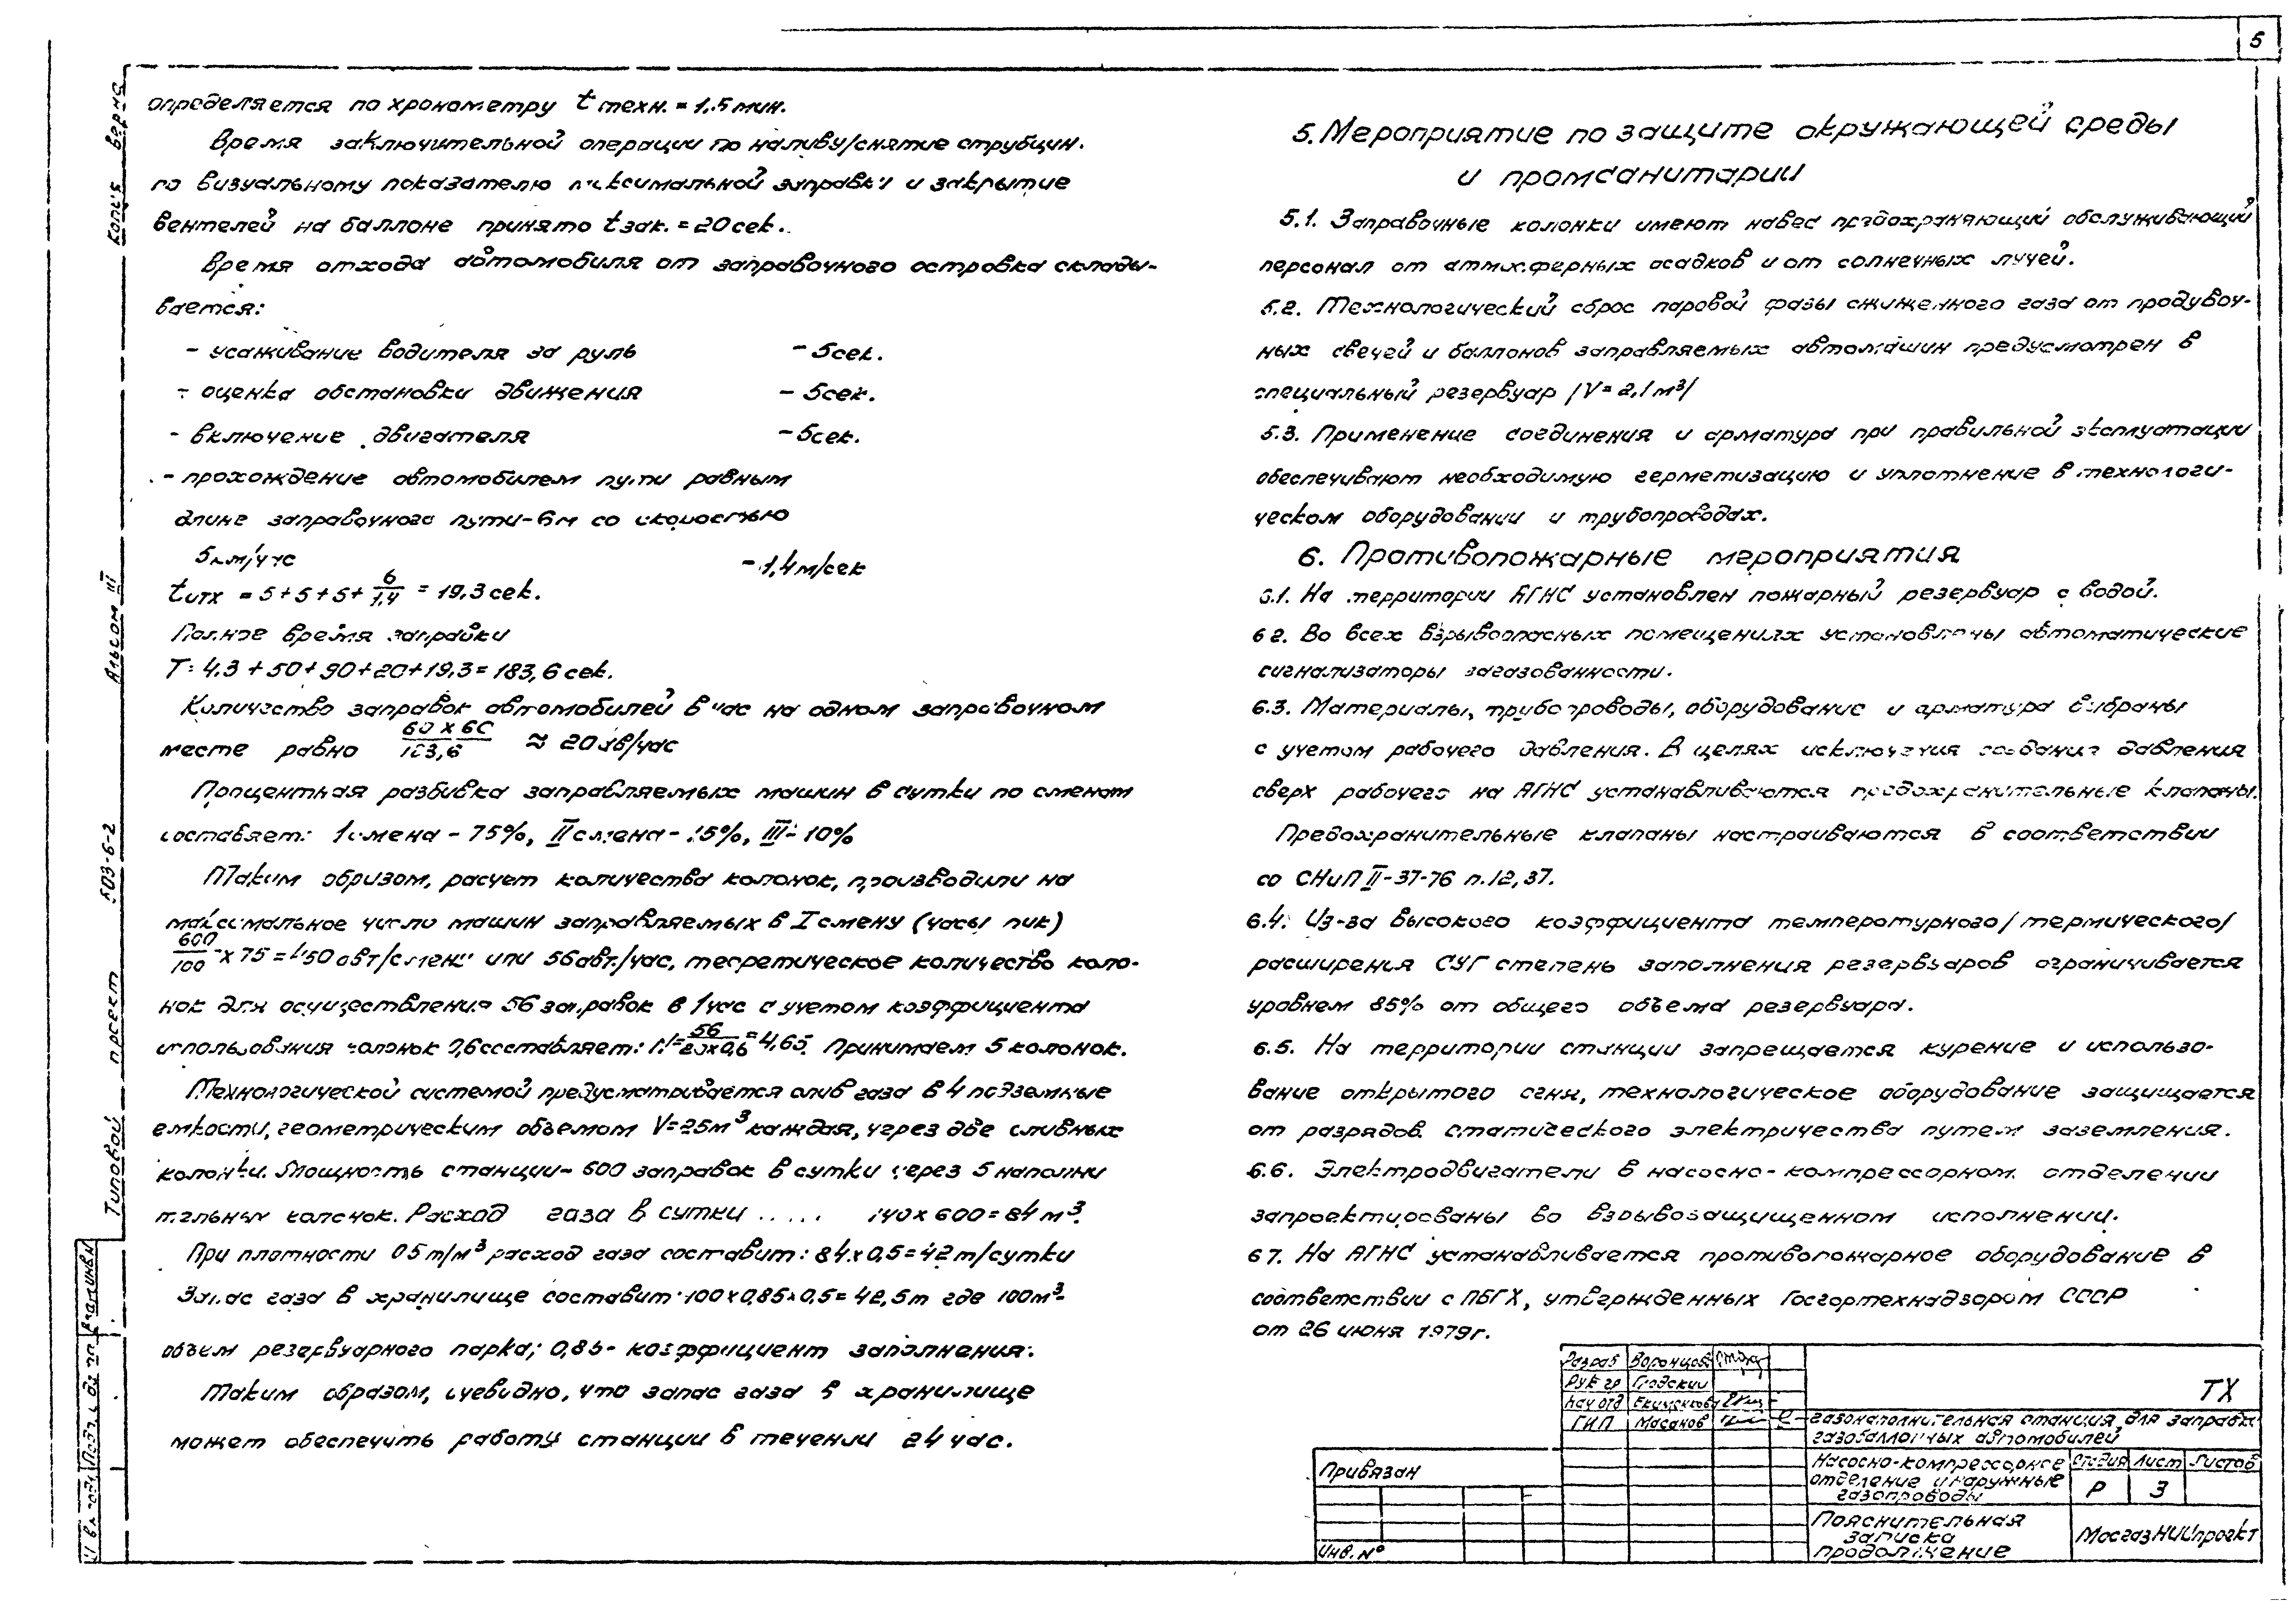 5
определяется по хронометру t техн. = 1,5 мин.
Время заключительной операции по наливу/снятие струбцин.
по визуальному показателю максимальной заправки и закрытие
вентелей на баллоне принято t зак. = 20 сек.
Время отхода автомобиля от заправочного островка склады-
вается:
- усаживание водителя за руль - 5сек.
- оценка обстановки движения - 5сек.
- включение двигателя - 5сек.
- прохождение автомобилем пути равным
длине заправочного пути - 6м со скоростью
5км/час - 1,4 м/сек
t отх = 5+5+5+ 6/1,4 = 19,3 сек.
Полное время заправки
T = 4,3 + 50 + 90 + 20 + 19,3 = 183,6 сек.
Количество заправок автомобилей в час на одном заправочном
месте равно 60 x 60/183,6 ≈ 20 ав/час
Процентная разбивка заправляемых машин в сутки по сменам
составляет: I смена - 75%, II смена - 15%, III - 10%
Таким образом, расчет количества колонок, производили на
максимальное число машин заправляемых в I смену (часы пик)
600/100 x 75 = 450 авт/смену или 56авт./час, теоретическое количество коло-
нок для осуществления 56 заправок в 1 час с учетом коэффициента
использования колонок 0,6 составляет: N = 56/20x0,6 = 4,65. Принимаем 5 колонок.
Технологической системой предусматривается слив газа в 4 подземные
емкости, геометрическим объемом V=25м³ каждая, через две сливных
колонки. Мощность станции - 600 заправок в сутки через 5 наполни
тельных колонок. Расход газа в сутки ..... 140 x 600 = 84 м³.
При плотности 0,5 т/м³ расход газа составит: 84 x 0,5 = 42 т/сутки
Запас газа в хранилище составит 100 x 0,85 x 0,5 = 42,5т где 100м³-
объем резервуарного парка; 0,85 - коэффициент заполнения.
Таким образом, очевидно, что запас газа в хранилище
может обеспечить работу станции в течении 24 час.
5. Мероприятие по защите окружающей среды
и промсанитарии
5.1. Заправочные колонки имеют навес предохраняющий обслуживающий
персонал от атмосферных осадков и от солнечных лучей.
5.2. Технологический сброс паровой фазы сжиженного газа от продувоч-
ных свечей и баллонов заправляемых автомашин предусмотрен в
специальный резервуар /V = 2,1 м³/
5.3. Применение соединения и арматура при правильной эксплуатации
обеспечивают необходимую герметизацию и уплотнение в технологи-
ческом оборудовании и трубопроводах.
6. Противопожарные мероприятия
6.1. На территории АГНС установлен пожарный резервуар с водой.
6.2. Во всех взрывоопасных помещениях установлены автоматические
сигнализаторы загазованности.
6.3. Материалы, трубопроводы, оборудование и арматура выбраны
с учетом рабочего давления. В целях исключения создания давления
сверх рабочего на АГНС устанавливаются предохранительные клапаны.
Предохранительные клапаны настраиваются в соответствии
со СНиП II-37-76 п. 12,37.
6.4. Из-за высокого коэффициента температурного/термического/
расширения СУГ степень заполнения резервуаров ограничивается
уровнем 85% от общего объема резервуара.
6.5. На территории станции запрещается курение и использо-
вание открытого огня, технологическое оборудование защищается
от разрядов статического электричества путем заземления.
6.6. Электродвигатели в насосно-компрессорном отделении
запроектированы во взрывозащищенном исполнении.
6.7. На АГНС устанавливается противопожарное оборудование в
соответствии с ПБГХ, утвержденных Госгортехнадзором СССР
от 26 июня 1979г.
Копия верна
Альбом III
503-6-2
Типовой проект
Взам инв N
Подп. и дата
Инв N подл
Разраб Воронцов
Рук гр Градский
Нач отд
ГИП Масанов
ТХ
газонаполнительная станция для заправки
газобаллонных автомобилей
Насосно-компрессорное
отделение и наружные
газопроводы
Стадия Лист Листов
Р 3
Пояснительная
записка
продолжение
МосгазНИИпроект
Привязан
Инв. №